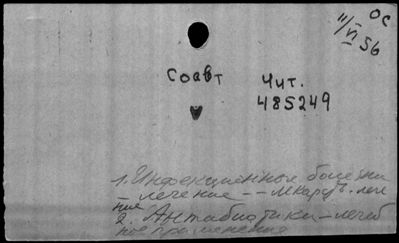 ОС
11/VI 56
Соавт Чит.
485249
1. Инфекционные болезни
– лечение – – лекарств. лече
ние
2. Антибиотики – лечеб
ное применение